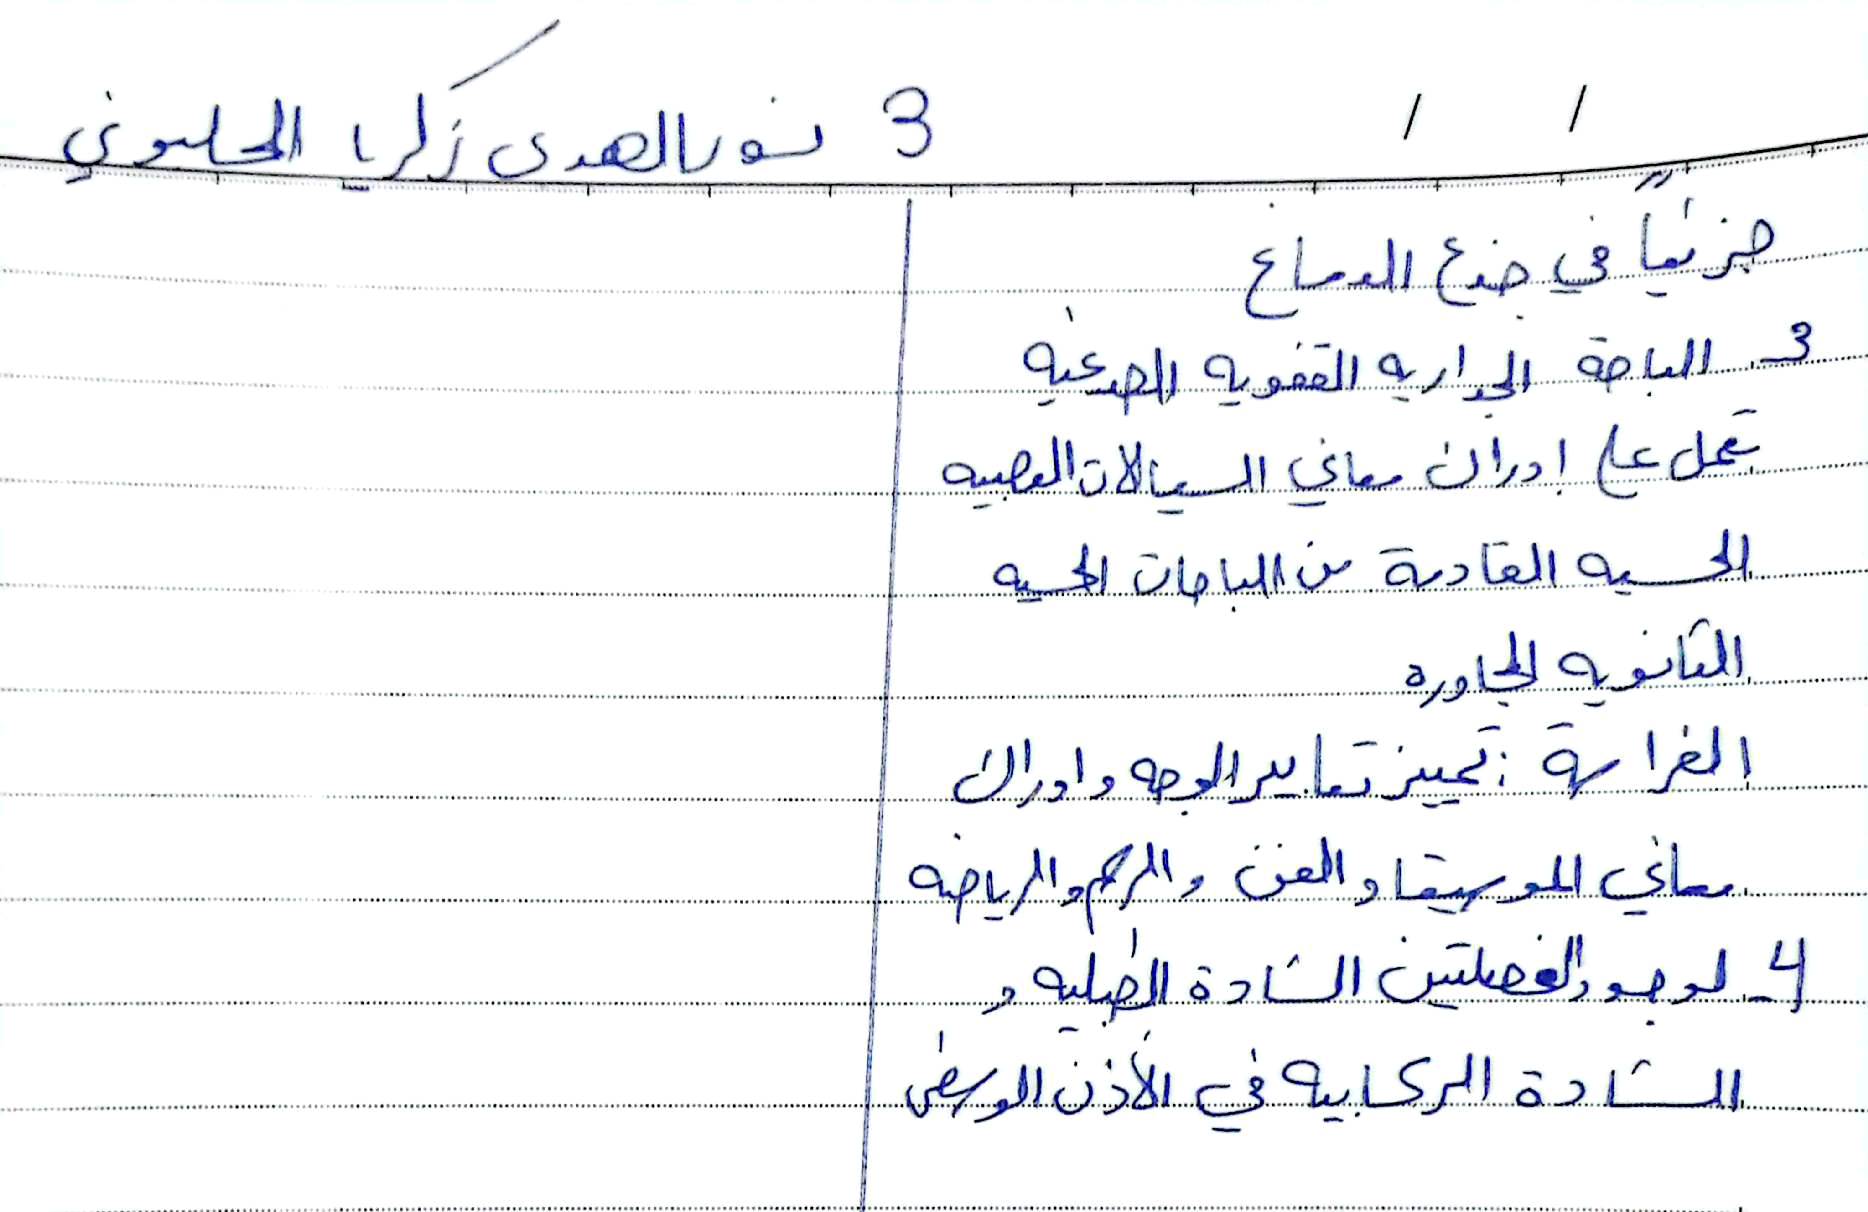 3 نور الهدى زكريا الحلبوني
جزئياً في جذع الدماغ
3- الباحة الجدارية القفوية الصدغية
تعمل على إدراك معاني السيالات العصبيه
الحسيه القادمة من الباحات الحسيه
الثانويه المجاوره
الفراسة : تمييز تعابير الوجه وادراك
معاني الموسيقا والفن والرسم والرياضه
4- لوجود العضلتين الشادة الطبليه و
الشادة الركابيه في الأذن الوسطى